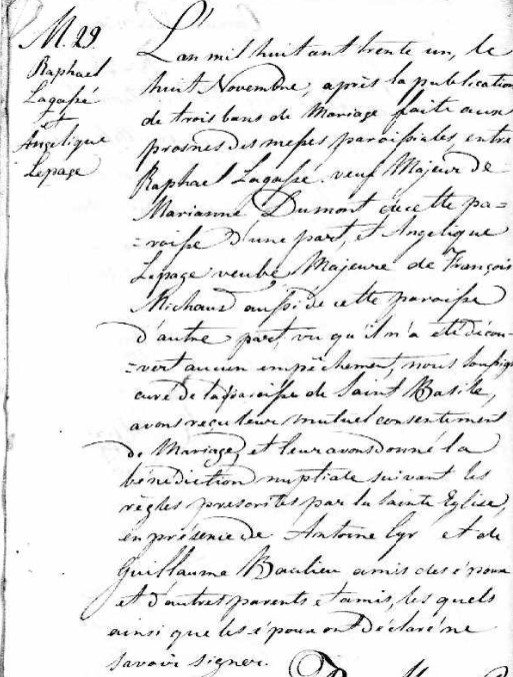 M. 29.
Raphael
Lagassé
&
Angelique
Lepage
L'an mil huit ant trente un, le
huit Novembre, après la publication
de trois bans de Mariage faite aux
prosnes des messes paroissiales, entre
Raphael Lagassé veuf Majeur de
Marianne Dumont de cette pa=
=roisse d'une part, et Angelique
Lepage veuve Majeure de François
Michaud aussi de cette paroisse
d'autre part vu qu'il n'a eté décou-
=vert aucun empêchement, nous soussigné
curé de la paroisse de Saint Basile,
avons reçu leur mutuel consentement
de Mariage, et leur avons donné la
bénédiction nuptiale suivant les
règles prescrites par la Sainte Eglise,
en présence de Antoine Cyr et de
Guillaume Baulieu amis des époux
et d'autres parents et amis, les quels
ainsi que les époux ont déclaré ne
savoir signer.